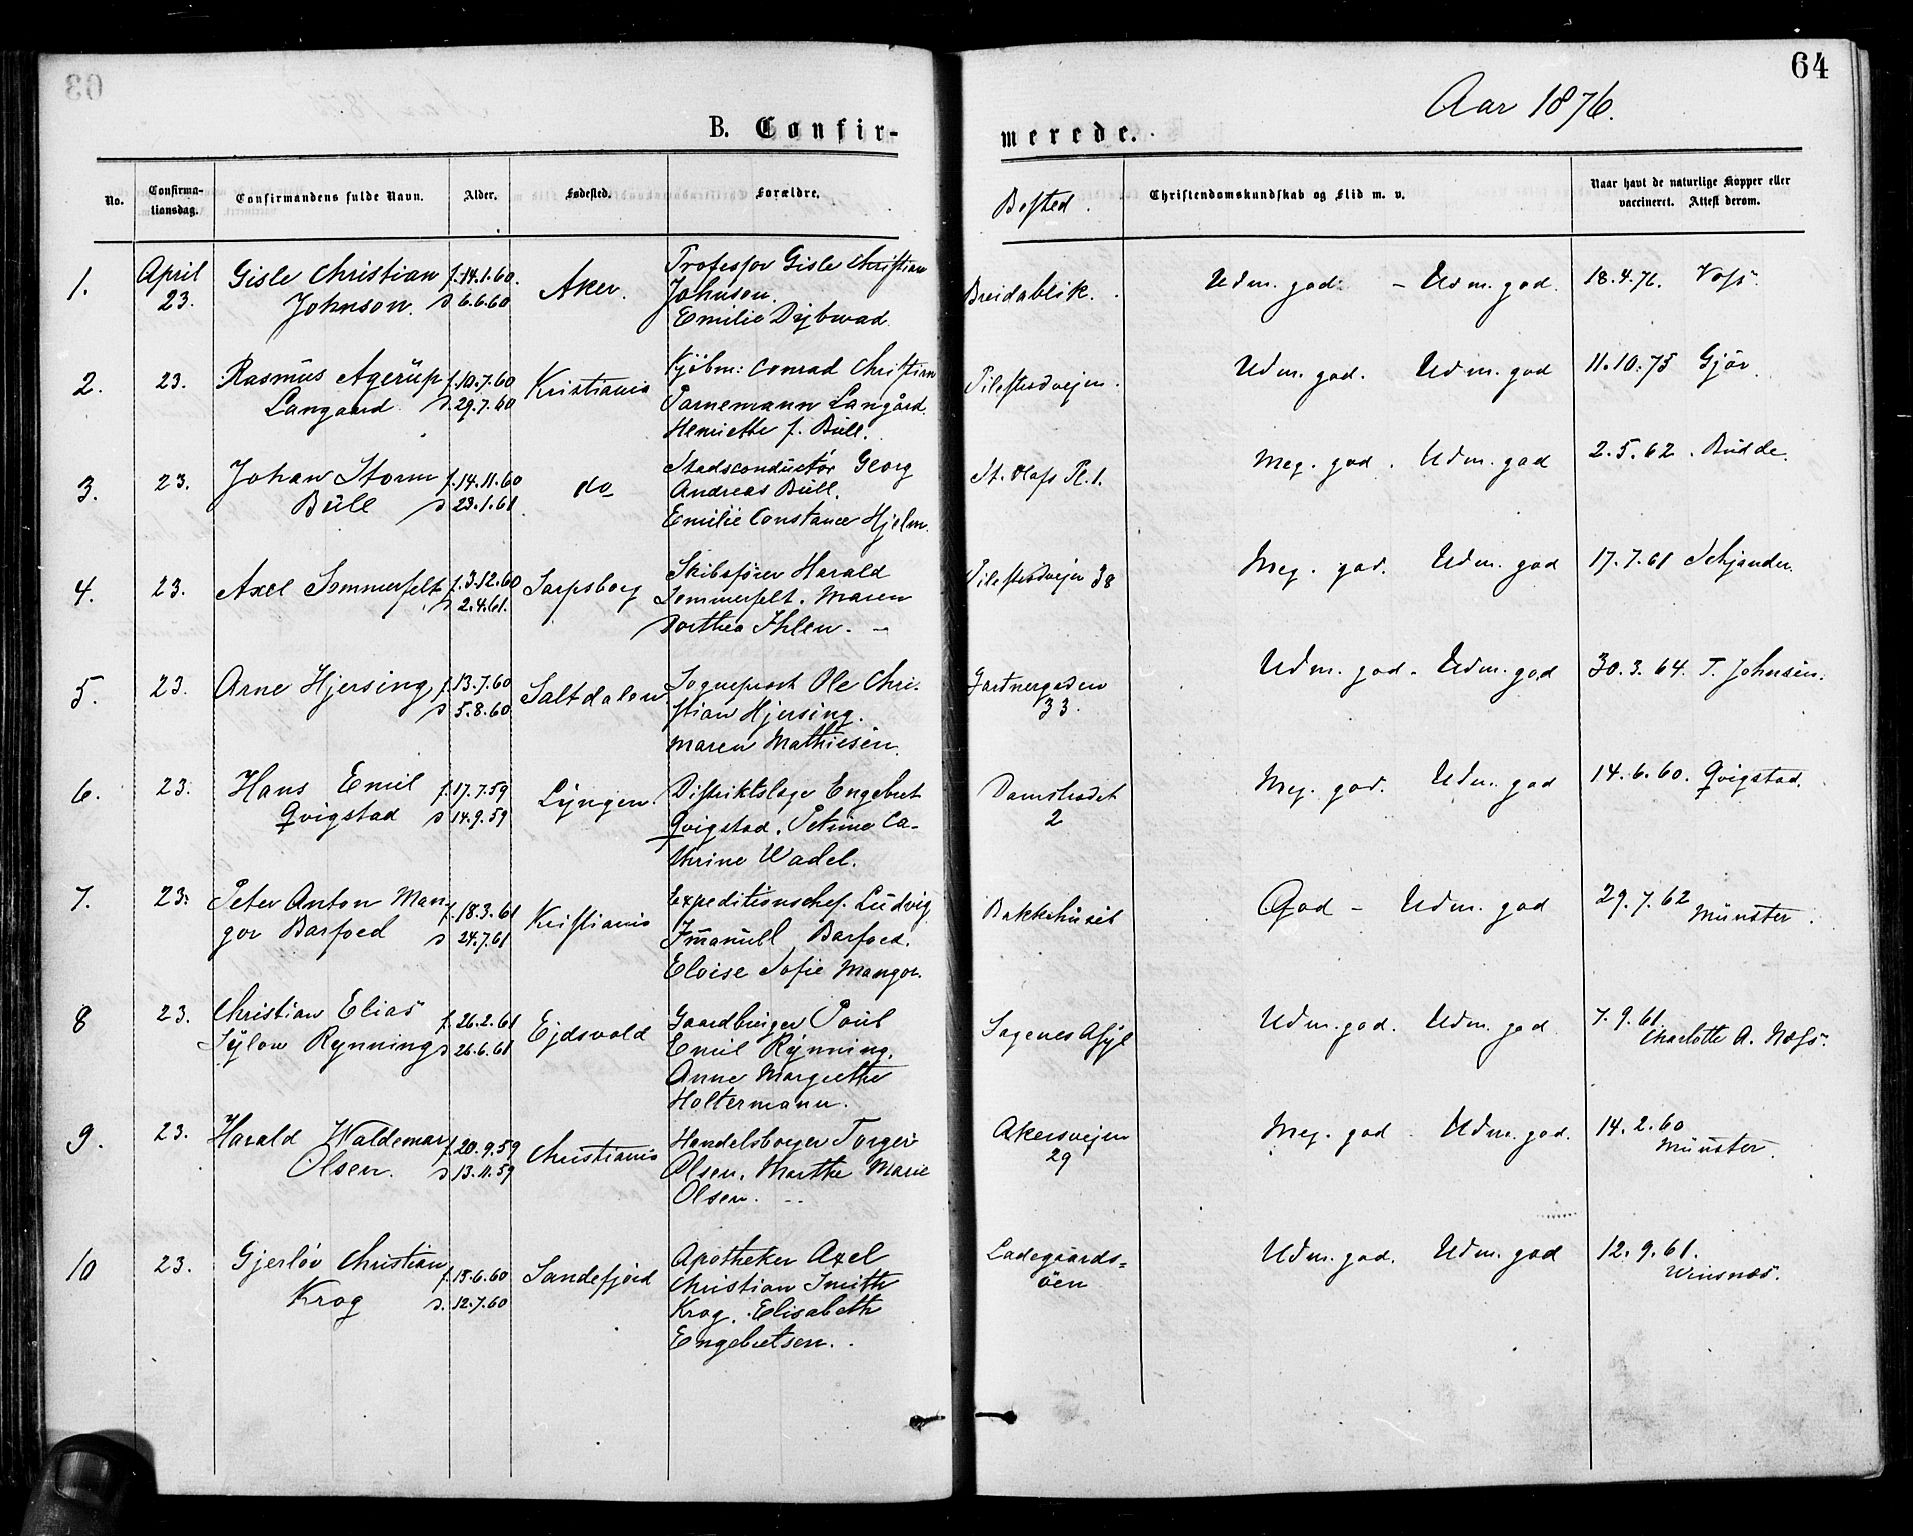 64
Aar 1876.
B. Confir-
merede.
No.
Confirma-
tionsdag.
Confirmandens fulde Navn.
Alder.
Fødested.
Forældre.
Bosted.
Christendomskundskab og Flid m. v.
Naar havt de naturlige Kopper eller
vaccineret. Attest derom.
1. April 23. Gisle Christian Johnson. f. 14.1.60. d 6.6.60 Aker. Professor Gisle Christian
Johnson.
Emilie Dybwad
Breidablik. Udm. god. - Udm. god. 18.4.76. Voss
2. 23. Rasmus Agerup Langaard. f. 10.7.60 d. 29.7.60 Kristiania Kjøbm: Conrad Christian
Parnemann Langård.
Henriette f. Bull.
Pilestrædvejen. Udm. god. Udm. god 11.10.75 Gjør
3. 23. Johan Storm Bull f. 14.11.60 d 23.1.61 do Stadsconductør Georg
Andreas Bull.
Emilie Constance Hjelm.
St. Olafs Pl. 1. Meg. god. Udm. god 2.5.62. Budde.
4. 23. Axel Sommerfelt f. 3.12.60 d 2.4.61. Sarpsborg Skibsfører Harald
Sommerfelt. Maren
Dorthea Ihlen. -
Pilestrædvejen 38 Meg. god. Udm. god 17.7.61
5. 23. Arne Hjersing f. 13.7.60 d 5.8.60 Saltdalen Sogneprest Ole Chri-
stian Hjersing.
Maren Mathiesen.
Gartnergaden
33. Udm. god - Udm. god 30.3.64. T. Johnsen.
6. 23. Hans Emil Qvigstad f. 17.7.59 d 14.9.59 Lyngen. Distriktslæge Engebret
Qvigstad. Petrine Ca-
thrine Wadel.
Damstredet
2 Meg. god. Udm. god 14.6.60. Qvigstad.
7. 23. Peter Anton Man gor Barfoed f. 18.3.61 d 24.7.61 Kristiania Expeditionschef. Ludvig
Imanuel Barfoed.
Eloise Sofie Mangor.
Bakkehuset God - Udm. god 29.7.62
Münster.
8 23. Christian Elias Sylow Rynning f. 26.2.61 d 26.6.61 Ejdsvold Gaardbruger Poul
Emil Rynning.
Anne Margrethe
Holtermann.
Sagenes Asyl Udm. god. Udm. god. 7.9.61
Charlotte A. Næss.
9. 23. Harald Waldemar Olsen. f. 20.9.59 d 13.11.59 Christiania Handelsborger Torger
Olsen. Marthe Marie
Olsen. --
Akersvejen
29 Meg. god Udm. god. 14.2.60
Münster.
10 23. Gjerløv Christian Krog f. 15.6.60 d. 12.7.60 Sandefjord Apotheker Axel
Christian Smith
Krog. Elisabeth
Engebretsen.
Ladegaards=
öen Udm. god. Udm. god 12.9.61.